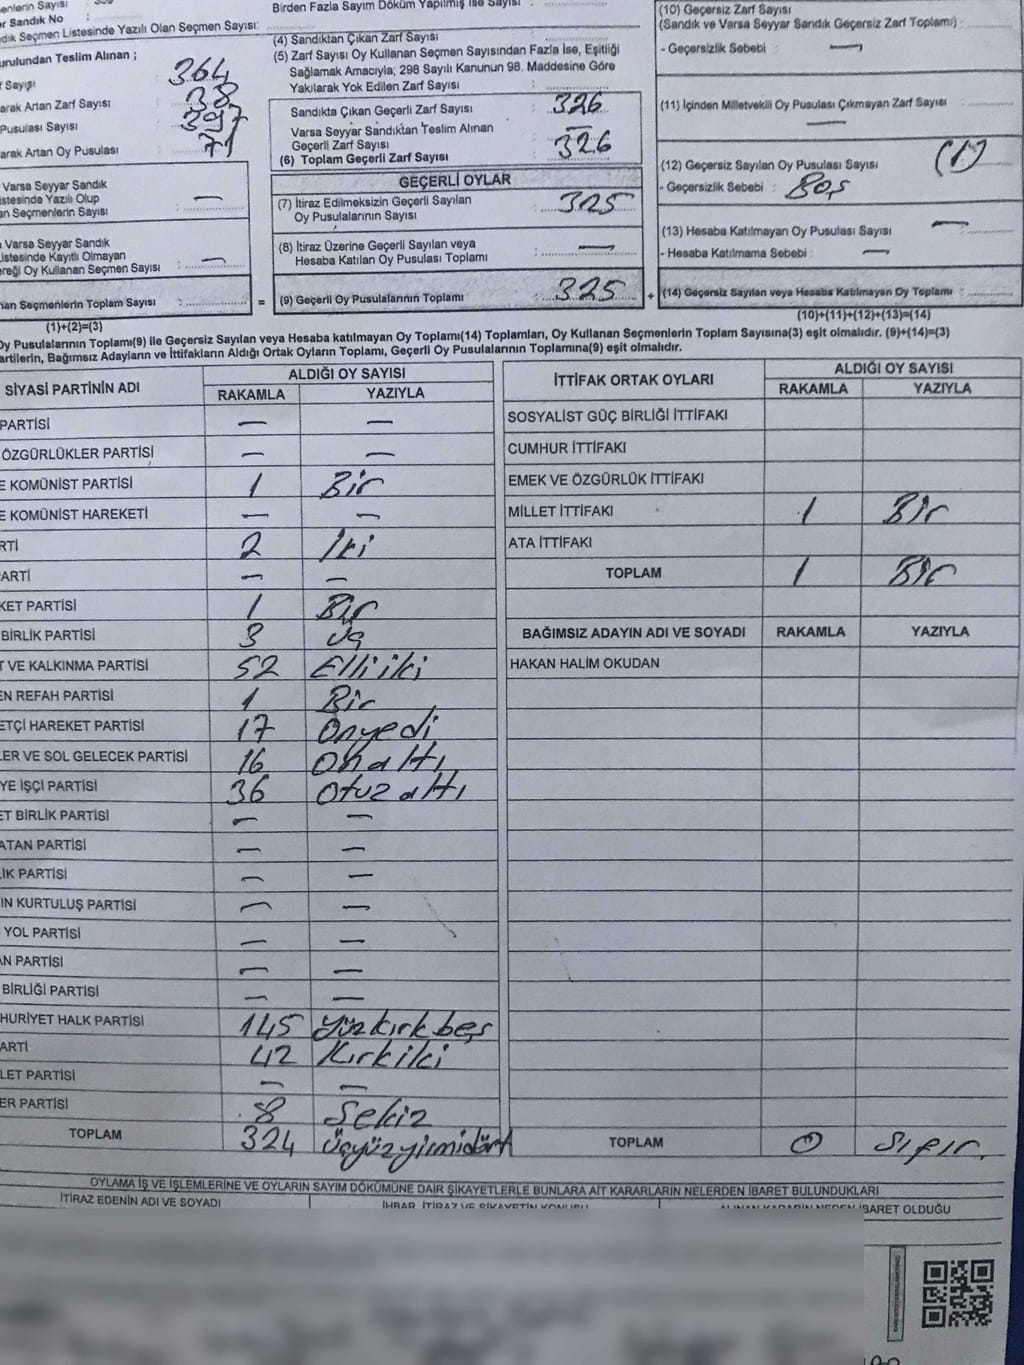 enlerin Sayısı
Birden Fazla Sayım Döküm Yapılmış İse Sayısı :
r Sandık No :
dık Seçmen Listesinde Yazılı Olan Seçmen Sayısı:
urulundan Teslim Alınan ;
f Sayısı 364
arak Artan Zarf Sayısı 38
Pusulası Sayısı 397
arak Artan Oy Pusulası 71
Varsa Seyyar Sandık
istesinde Yazılı Olup
an Seçmenlerin Sayısı : —
Varsa Seyyar Sandık
Listesinde Kayıtlı Olmayan
ereği Oy Kullanan Seçmen Sayısı : —
nan Seçmenlerin Toplam Sayısı :
(1)+(2)=(3)
(4) Sandıktan Çıkan Zarf Sayısı
(5) Zarf Sayısı Oy Kullanan Seçmen Sayısından Fazla İse, Eşitliği
Sağlamak Amacıyla; 298 Sayılı Kanunun 98. Maddesine Göre
Yakılarak Yok Edilen Zarf Sayısı :
Sandıkta Çıkan Geçerli Zarf Sayısı : 326
Varsa Seyyar Sandıktan Teslim Alınan
Geçerli Zarf Sayısı : —
(6) Toplam Geçerli Zarf Sayısı : 326
GEÇERLİ OYLAR
(7) İtiraz Edilmeksizin Geçerli Sayılan
Oy Pusulalarının Sayısı : 325
(8) İtiraz Üzerine Geçerli Sayılan veya
Hesaba Katılan Oy Pusulası Toplamı : —
= (9) Geçerli Oy Pusulalarının Toplamı : 325
(10) Geçersiz Zarf Sayısı
(Sandık ve Varsa Seyyar Sandık Geçersiz Zarf Toplamı) :
- Geçersizlik Sebebi : —
(11) İçinden Milletvekili Oy Pusulası Çıkmayan Zarf Sayısı :
—
(12) Geçersiz Sayılan Oy Pusulası Sayısı : (1)
- Geçersizlik Sebebi : Boş
(13) Hesaba Katılmayan Oy Pusulası Sayısı —
- Hesaba Katılmama Sebebi : —
+ (14) Geçersiz Sayılan veya Hesaba Katılmayan Oy Toplamı :
(10)+(11)+(12)+(13)=(14)
Oy Pusulalarının Toplamı(9) ile Geçersiz Sayılan veya Hesaba katılmayan Oy Toplamı(14) Toplamları, Oy Kullanan Seçmenlerin Toplam Sayısına(3) eşit olmalıdır. (9)+(14)=(3)
artilerin, Bağımsız Adayların ve İttifakların Aldığı Ortak Oyların Toplamı, Geçerli Oy Pusulalarının Toplamına(9) eşit olmalıdır.
SİYASİ PARTİNİN ADI ALDIĞI OY SAYISI
RAKAMLA YAZIYLA
PARTİSİ — —
ÖZGÜRLÜKLER PARTİSİ — —
E KOMÜNİST PARTİSİ 1 Bir
E KOMÜNİST HAREKETİ — —
RTİ 2 İki
ARTİ — —
KET PARTİSİ 1 Bir
BİRLİK PARTİSİ 3 Üç
T VE KALKINMA PARTİSİ 52 Elli iki
EN REFAH PARTİSİ 1 Bir
ETÇİ HAREKET PARTİSİ 17 Onyedi
LER VE SOL GELECEK PARTİSİ 16 Onaltı
YE İŞÇİ PARTİSİ 36 Otuz altı
ET BİRLİK PARTİSİ — —
ATAN PARTİSİ — —
İK PARTİSİ — —
IN KURTULUŞ PARTİSİ — —
YOL PARTİSİ — —
AN PARTİSİ — —
BİRLİĞİ PARTİSİ — —
HURİYET HALK PARTİSİ 145 Yüzkırkbeş
ARTİ 42 Kırkiki
LET PARTİSİ — —
ER PARTİSİ 8 Sekiz
TOPLAM 324 Üçyüzyirmidört
İTTİFAK ORTAK OYLARI ALDIĞI OY SAYISI
RAKAMLA YAZIYLA
SOSYALİST GÜÇ BİRLİĞİ İTTİFAKI
CUMHUR İTTİFAKI
EMEK VE ÖZGÜRLÜK İTTİFAKI
MİLLET İTTİFAKI 1 Bir
ATA İTTİFAKI
TOPLAM 1 Bir
BAĞIMSIZ ADAYIN ADI VE SOYADI RAKAMLA YAZIYLA
HAKAN HALİM OKUDAN
TOPLAM 0 Sıfır.
OYLAMA İŞ VE İŞLEMLERİNE VE OYLARIN SAYIM DÖKÜMÜNE DAİR ŞİKAYETLERLE BUNLARA AİT KARARLARIN NELERDEN İBARET BULUNDUKLARI
İTİRAZ EDENİN ADI VE SOYADI İHBAR, İTİRAZ VE ŞİKAYETİN KONUSU ALINAN KARARIN NEDEN İBARET OLDUĞU